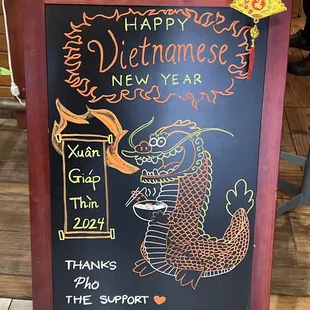 HAPPY
Vietnamese
NEW YEAR
Xuân
Giáp
Thìn
2024
THANKS
Pho
THE SUPPORT